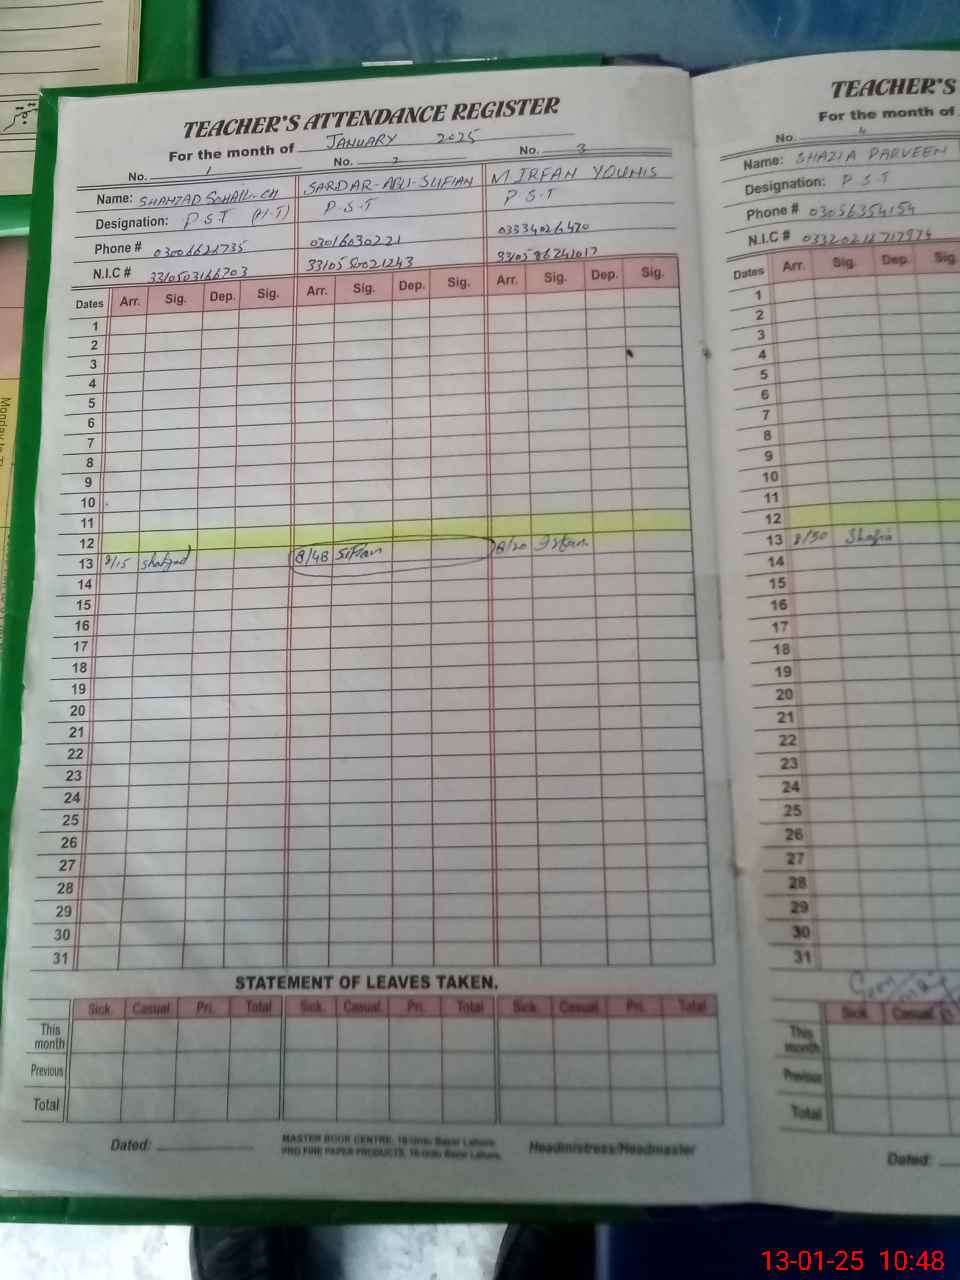 TEACHER'S ATTENDANCE REGISTER
For the month of JANUARY 2025
No. 1 No. 2 No. 3
Name: SHAHZAD SOHAIL-CH SARDAR-ABU-SUFIAN M IRFAN YOUNIS
Designation: P.S.T (H.T) P.S.T P.S.T
Phone # 03006621735 03016030221 03334026470
N.I.C #
Dates Arr. Sig. Dep. Sig. Arr. Sig. Dep. Sig. Arr. Sig. Dep. Sig.
1
2
3
4
5
6
7
8
9
10
11
12
13 8/15 shahzad 8/48 Sufian 8/20 Irfan
14
15
16
17
18
19
20
21
22
23
24
25
26
27
28
29
30
31
STATEMENT OF LEAVES TAKEN.
Sick. Casual Pri. Total Sick. Casual Pri. Total Sick. Casual Pri. Total
This month
Previous
Total
Dated:
MASTER BOOK CENTRE, 18-Urdu Bazar Lahore.
PRO FINE PAPER PRODUCTS, 18-Urdu Bazar Lahore.
Headmistress/Headmaster
TEACHER'S
For the month of
No. 4
Name: SHAZIA PARVEEN
Designation: P.S.T
Phone # 03056354154
N.I.C #
Dates Arr. Sig. Dep. Sig.
1
2
3
4
5
6
7
8
9
10
11
12
13 8/50 Shazia
14
15
16
17
18
19
20
21
22
23
24
25
26
27
28
29
30
31
Sick. Casual
This month
Previous
Total
Dated:
13-01-25 10:48